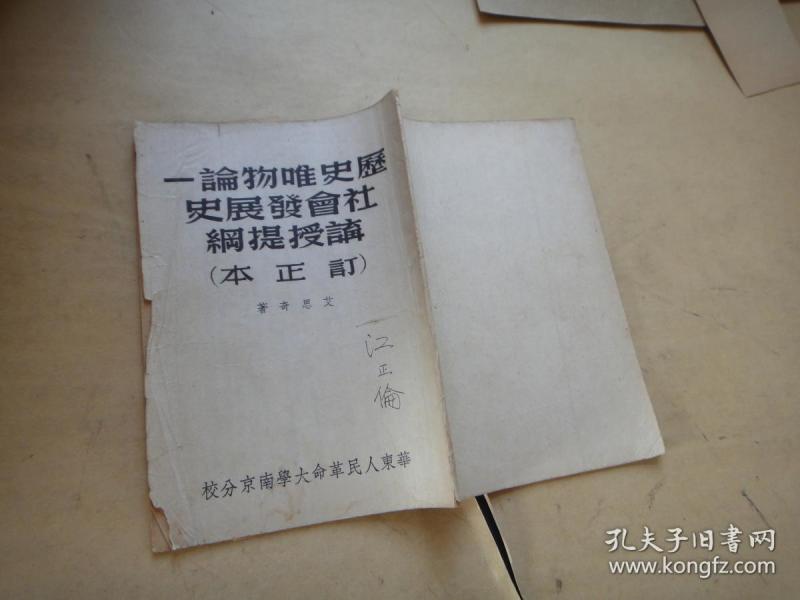 歷史唯物論—
社會發展史
講授提綱
(訂正本)
艾思奇著
江正倫
華東人民革命大學南京分校
孔夫子旧书网
www.kongfz.com